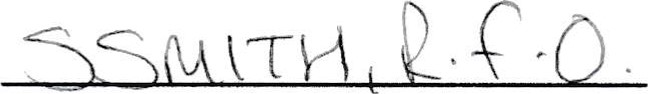 SSMITH, R.f.O.